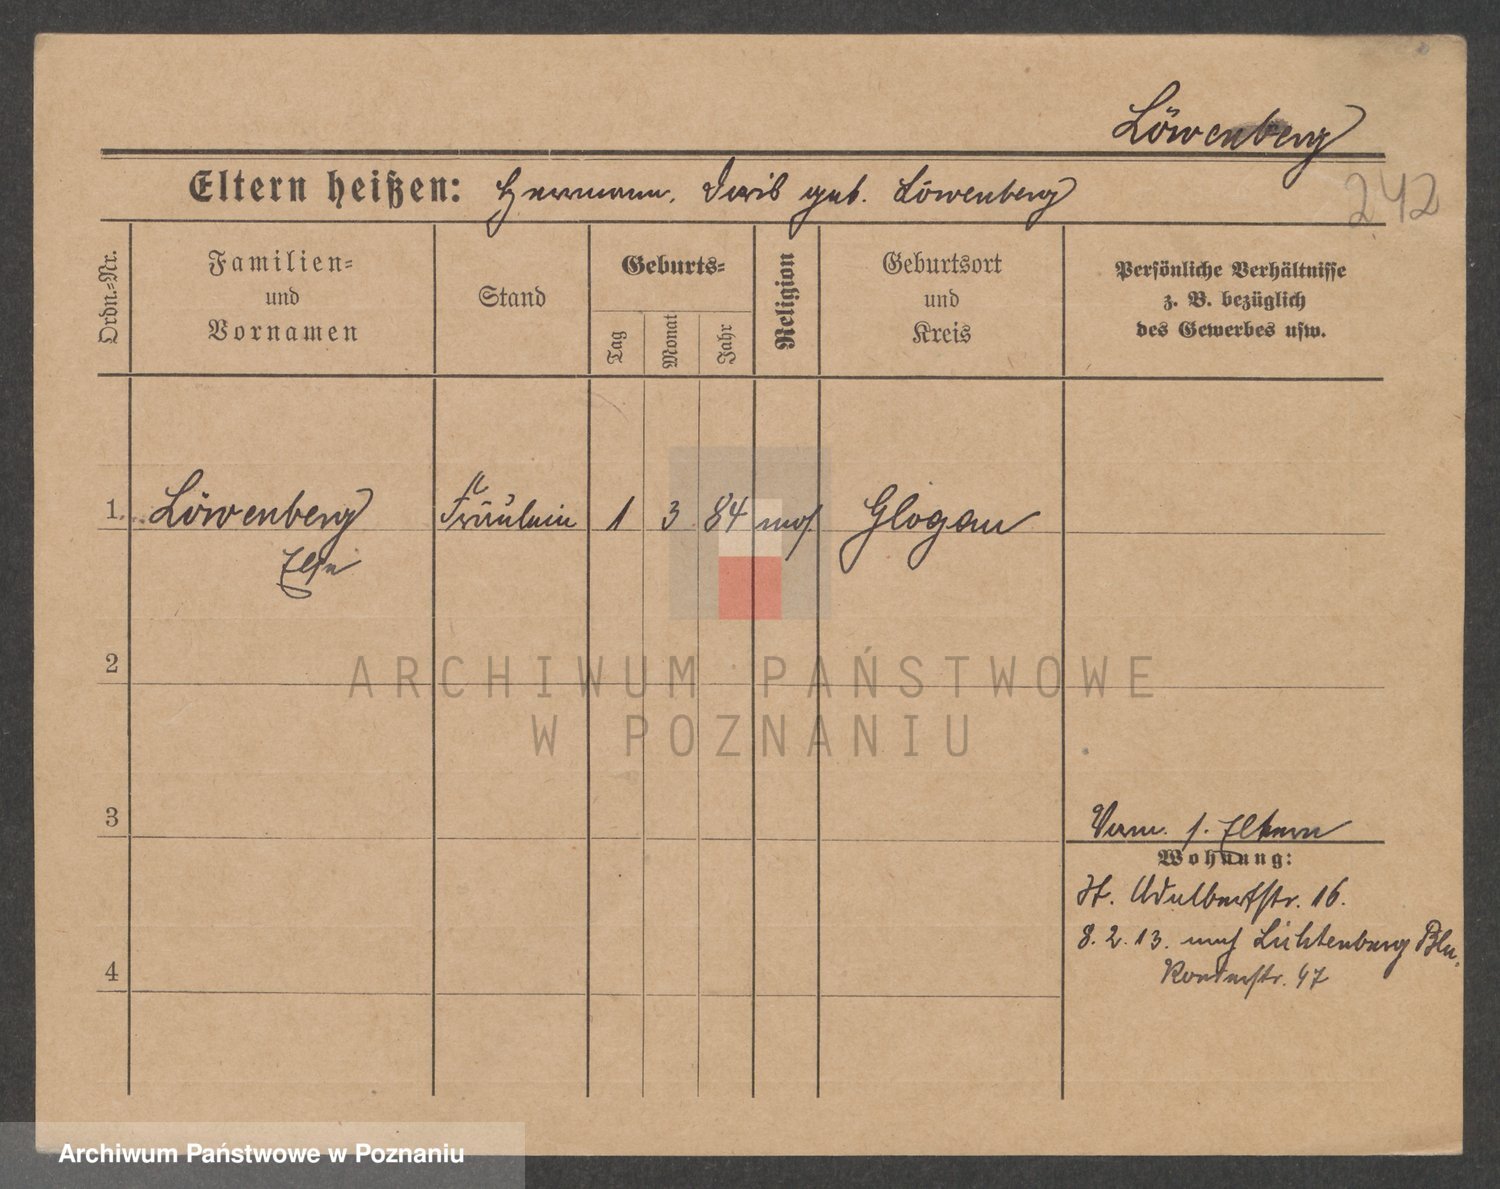 Löwenberg
242
Eltern heißen: Hermann, Doris geb. Löwenberg
Ordn.-Nr.
Familien-
und
Vornamen
Stand
Geburts-
Tag
Monat
Jahr
Religion
Geburtsort
und
Kreis
Persönliche Verhältnisse
z. B. bezüglich
des Gewerbes usw.
1 Löwenberg Fräulein 1 3 84 mos. Glogau
Else
2
ARCHIWUM PAŃSTWOWE
W POZNANIU
3
Verm. s. Eltern
Wohnung:
St. Adalbertstr. 16.
8. 2. 13. nach Lichtenberg Bln.
4
47
Archiwum Państwowe w Poznaniu